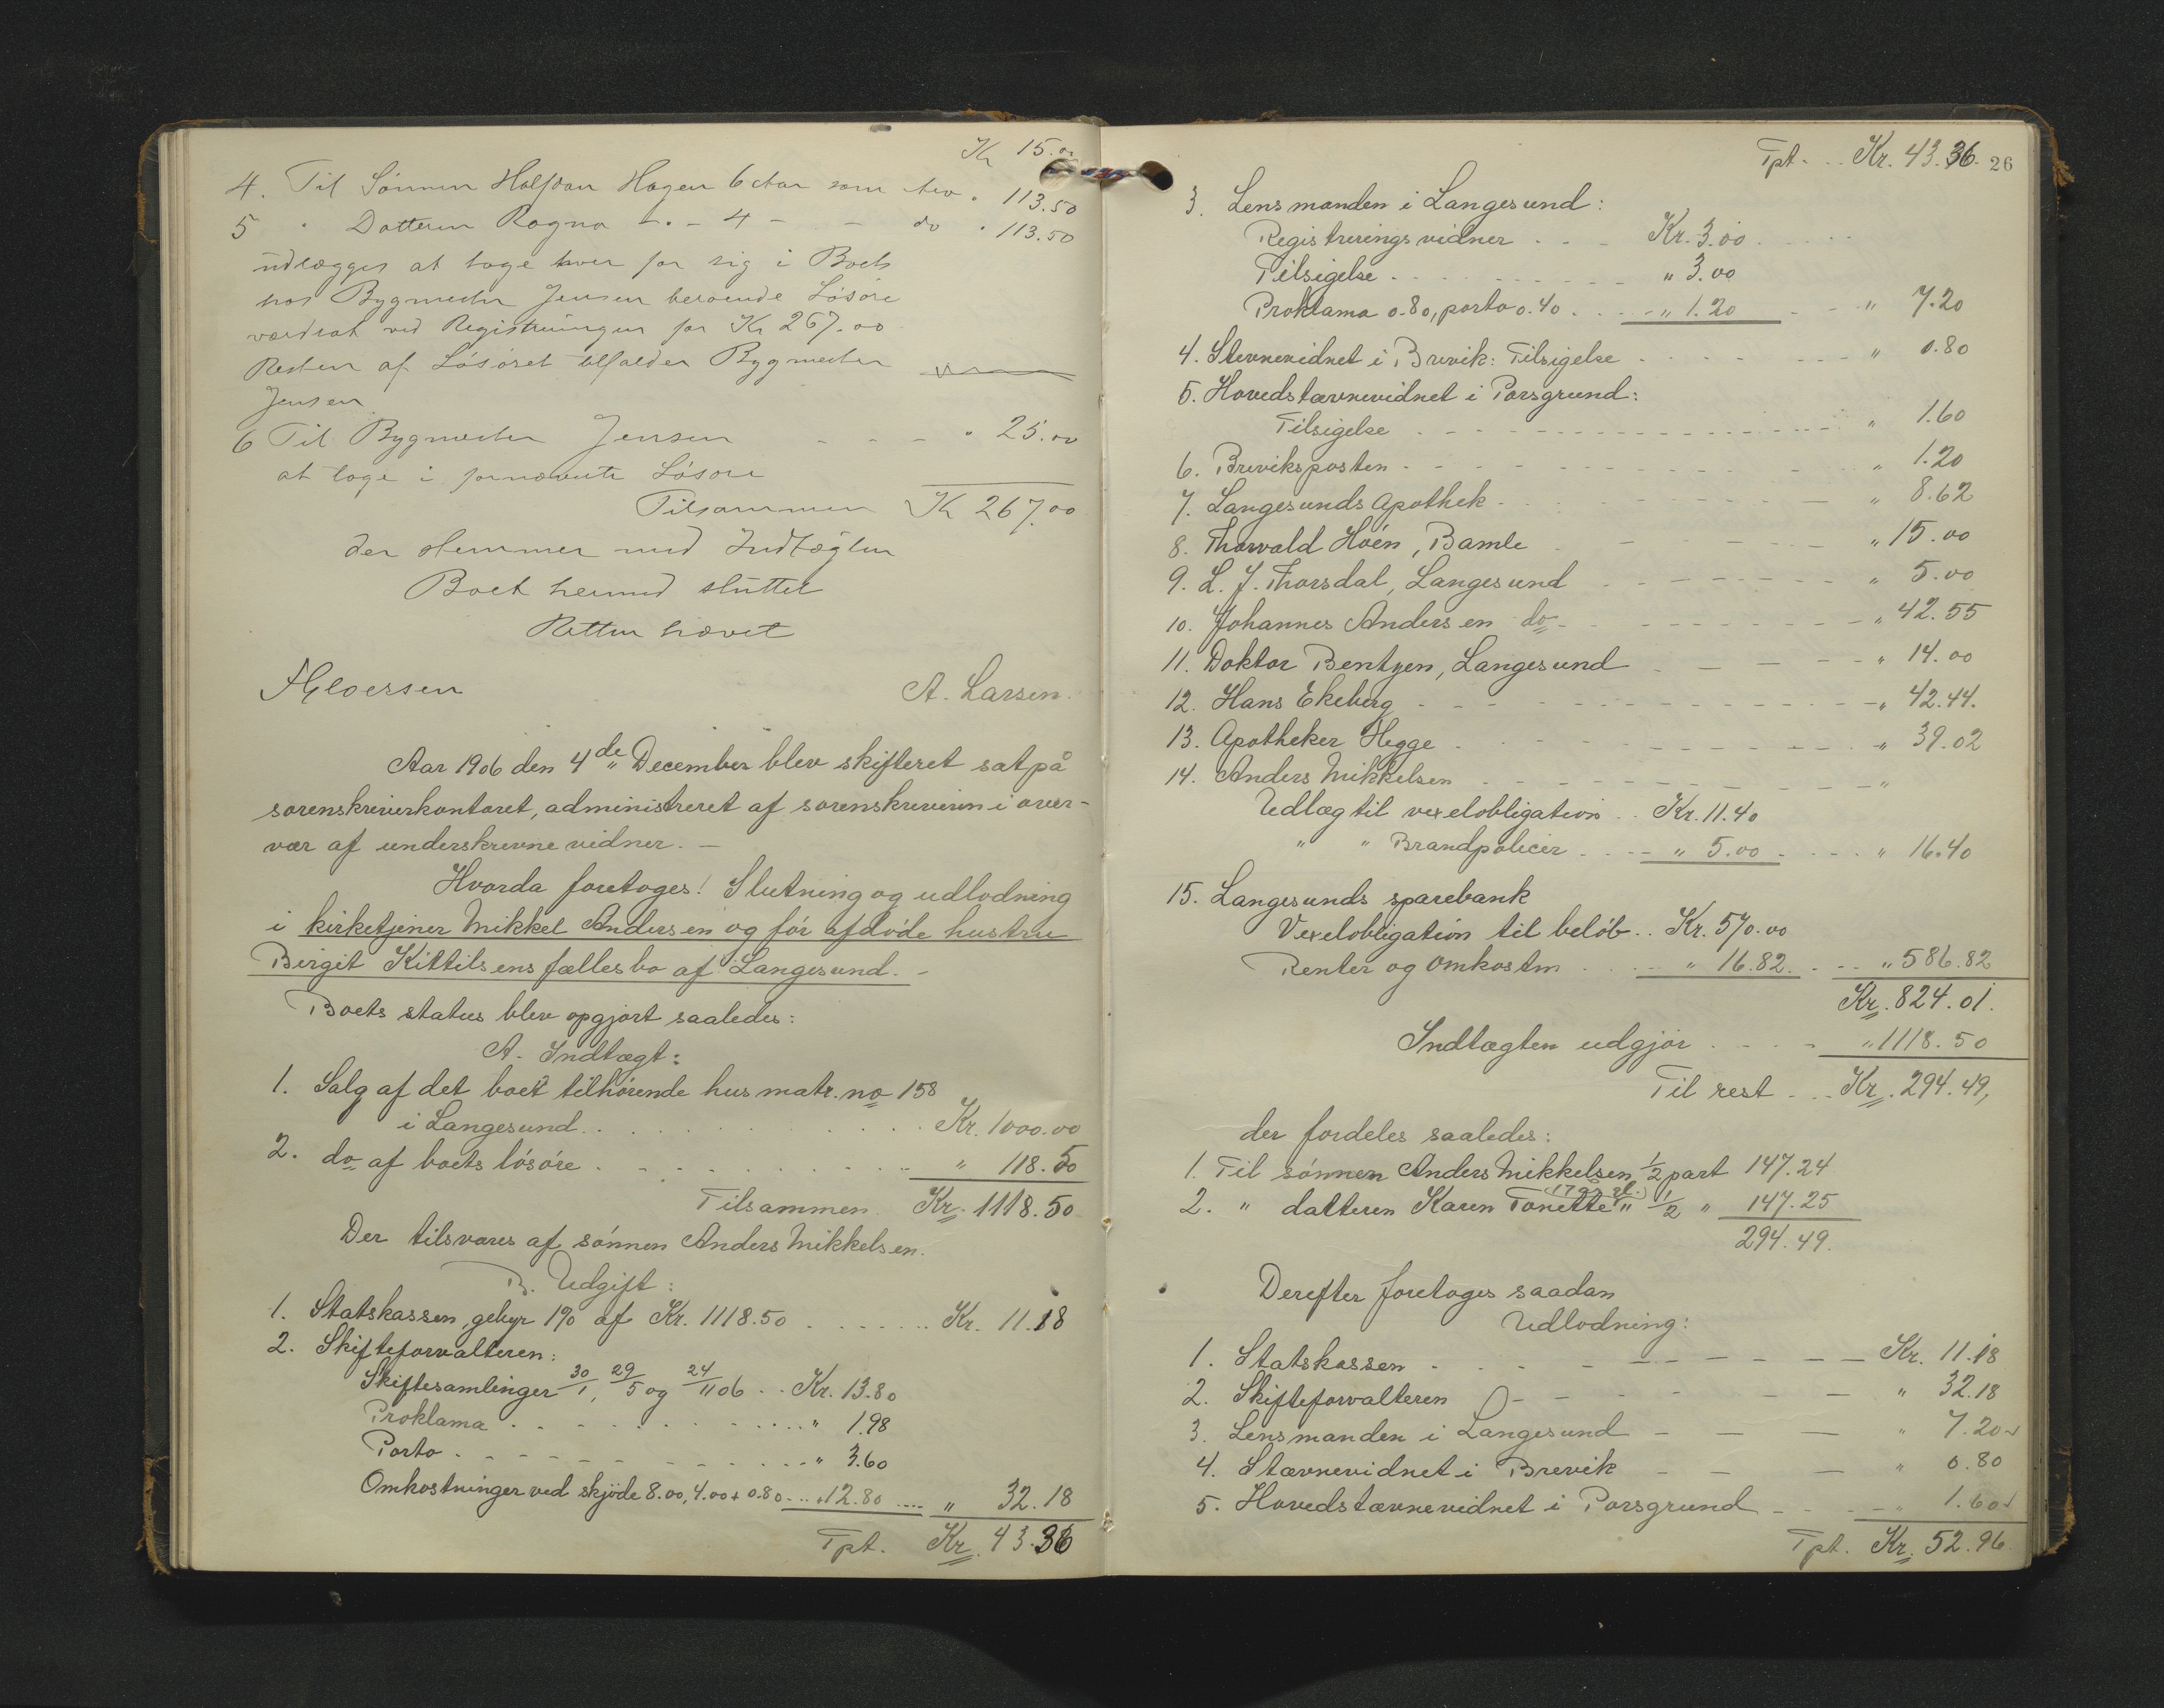 Kr 15.00
4. Til Sönnen Halfdan Hagen 6 Aar som Arv " 113.50
5 " Datteren Ragna -"- 4 - - do " 113.50
udlægges at tage hver for sig i Boets
hos Bygmester Jensen beroende Lösöre
værdsat ved Registreringen for Kr 267.00
Resten af Lösöret tilfalder Bygmester
Jensen
6 Til Bygmester Jensen - - - " 25.00
at tage i fornævnte Lösöre
Tilsammen Kr 267.00
der stemmer med Indtægten
Boet hermed sluttet
Retten hævet
A. Larsen.
Aar 1906 den 4de December blev skifteret sat på
sorenskriverkontoret, administreret af sorenskriveren i over-
vær af underskrevne vidner. -
Hvorda foretoges! Slutning og udlodning
i kirketjener Mikkel Andersen og för afdöde hustru
Birgit Kittilsens fællesbo af Langesund. -
Boets status blev opgjort saaledes:
A. Indtægt:
1. Salg af det boet tilhörende hus matr. no 158
i Langesund . . . Kr. 1000.00
2. do af boets lösöre . . . " 118.50
Tilsammen Kr. 1118.50
Der tilsvares af sönnen Anders Mikkelsen.
B. Udgift:
1. Statskassen, gebyr 1% af Kr. 1118.50 . . . Kr. 11.18
2. Skifteforvalteren:
Skiftesamlinger 30/1, 29/5 og 24/11 06 . . Kr. 13.80
Proklama . . . " 1.98
Porto . . . " 3.60
Omkostninger ved skjöde 8.00, 4.00 + 0.80 . . . " 12.80 . . . " 32.18
Tpt. Kr. 43.36
Tpt. . . Kr. 43.36. 26
3. Lensmanden i Langesund:
Registreringsvidner . . . Kr. 3.00
Tilsigelse . . . " 3.00
Proklama 0.80, porto 0.40 . . . " 1.20 . . . " 7.20
4. Stevnevidnet i Brevik: Tilsigelse . . . " 0.80
5. Hovedstævnevidnet i Porsgrund:
Tilsigelse . . . " 1.60
6. Breviksposten . . . " 1.20
7. Langesunds Apothek . . . " 8.62
8. Thorvald Hoén, Bamle . . . " 15.00
9. L. J. Thorsdal, Langesund . . . " 5.00
10. Johannes Andersen do . . . " 42.55
11. Doktor Bentzen, Langesund . . . " 14.00
12. Hans Ekeberg . . . " 42.44.
13. Apotheker Hegge . . . " 39.02
14. Anders Mikkelsen . . . "
Udlæg til vexelobligation . . Kr. 11.40
" " Brandpolicer . . . " 5.00 . . . " 16.40
15. Langesunds sparebank
Vexelobligation til belöb . . Kr. 570.00
Renter og omkostn . . . " 16.82 . . . " 586.82
Kr. 824.01.
Indtægten udgjör . . . " 1118.50
Til rest . . . Kr. 294.49,
der fordeles saaledes:
1. Til sönnen Anders Mikkelsen 1/2 part 147.24
2. " datteren Karen Tonette " 1/2 " 147.25
294.49.
Derefter foretoges saadan
Udlodning:
1. Statskassen . . . Kr. 11.18
2. Skifteforvalteren . . . " 32.18
3. Lensmanden i Langesund - - - " 7.20
4. Stævnevidnet i Brevik - - - " 0.80
5. Hovedstævnevidnet i Porsgrund - - - " 1.60
Tpt. Kr. 52.96.